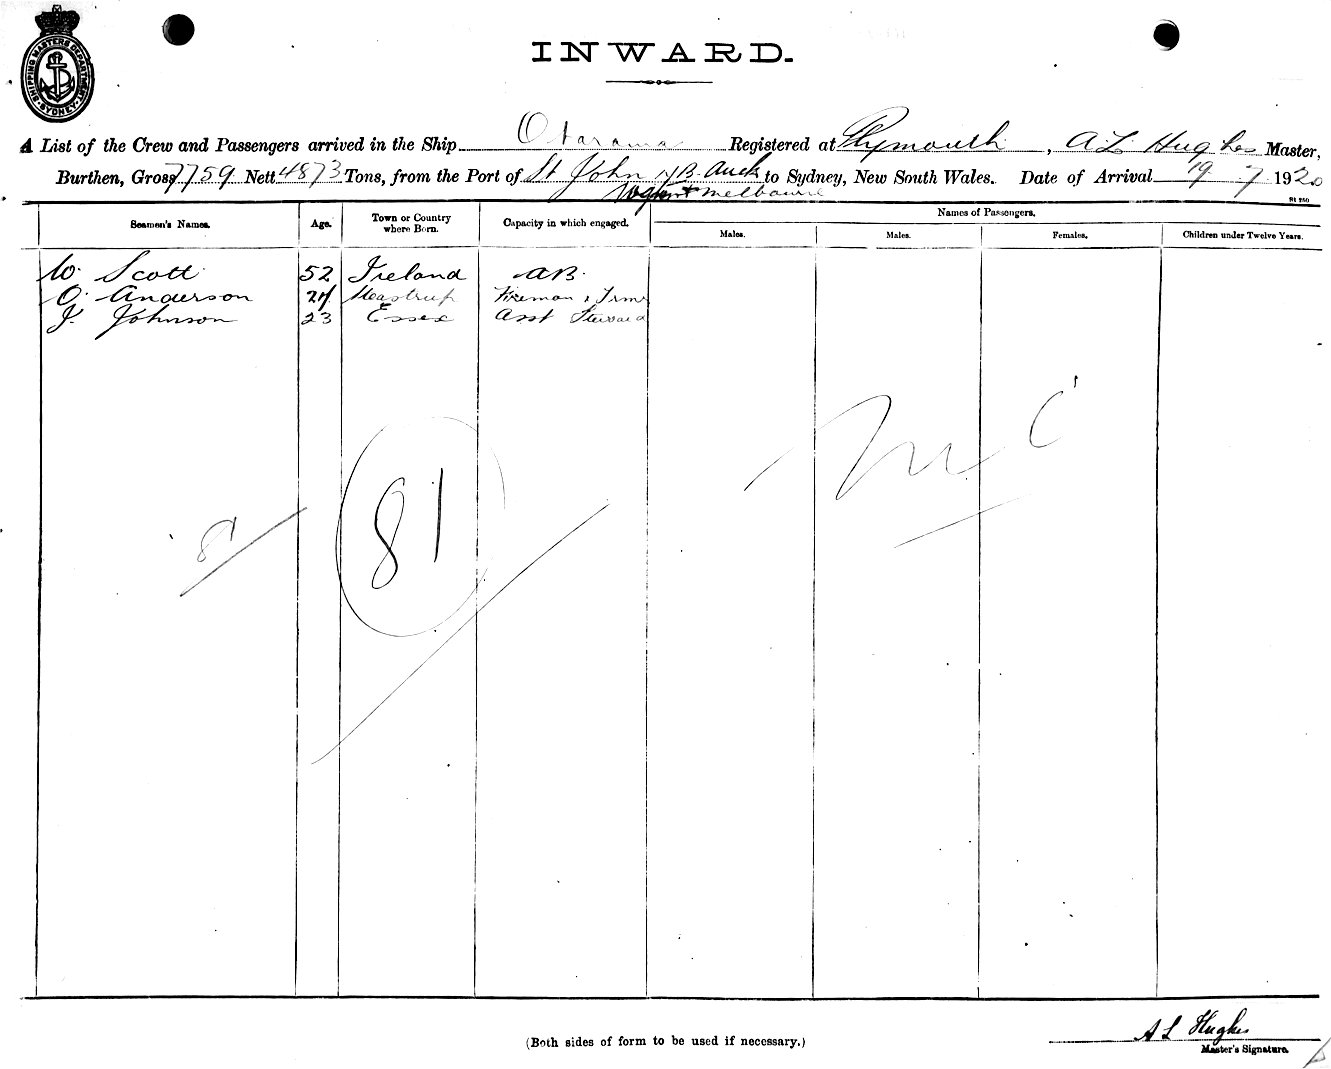 SHIPPING MASTERS DEPARTMENT SYDNEY
INWARD.
A List of the Crew and Passengers arrived in the Ship Otarama Registered at Plymouth, A L Hughes Master,
Burthen, Gross 7759 Nett 4873 Tons, from the Port of St John NB Auck to Sydney, New South Wales. Date of Arrival 19 7 1920
Melbourne
Seamen's Names. Age. Town or Country where Born. Capacity in which engaged. Names of Passengers.
Males. Males. Females. Children under Twelve Years.
W. Scott 52 Ireland AB
O. Anderson 27 Fireman & Trmr
J. Johnson 23 Essex Asst Steward
81
A L Hughes
(Both sides of form to be used if necessary.)
Master's Signature.